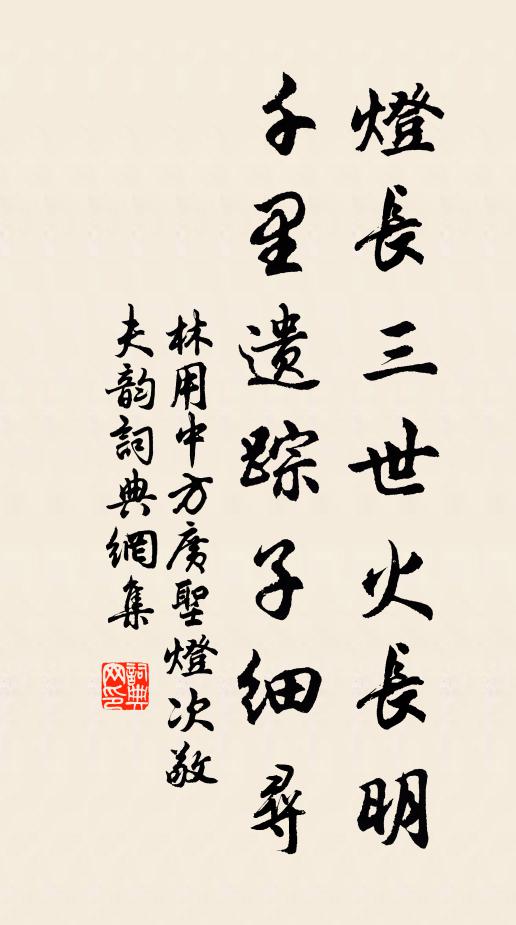 燈長三世火長明
千里遺踪子細尋
林用中方廣聖燈次敬
夫韵詞典網集
詞典網印